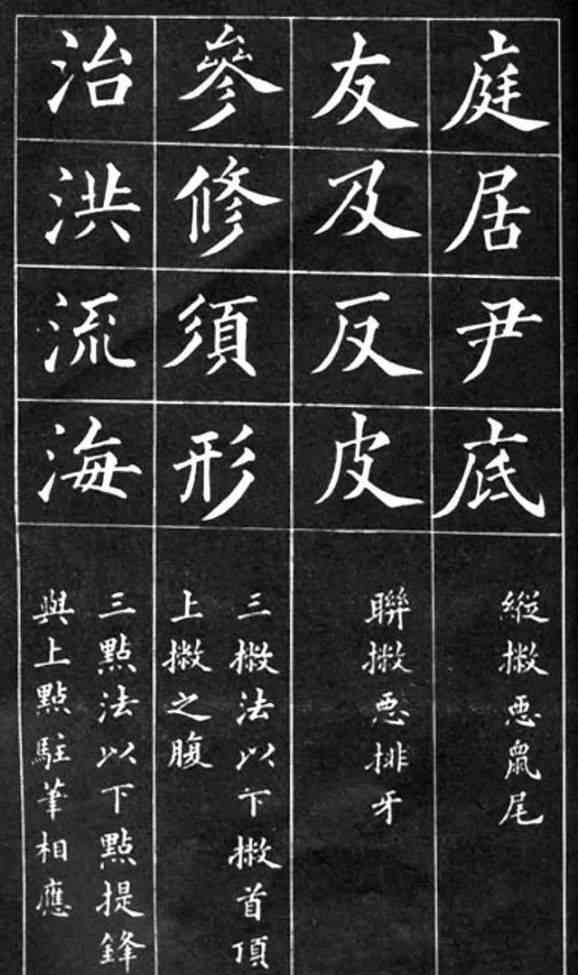 庭居尹底
縱撇惡鼠尾
友及反皮
聯撇惡排牙
參修須形
三撇法以下撇首頂
上撇之腹
治洪流海
三點法以下點提鋒
與上點駐筆相應